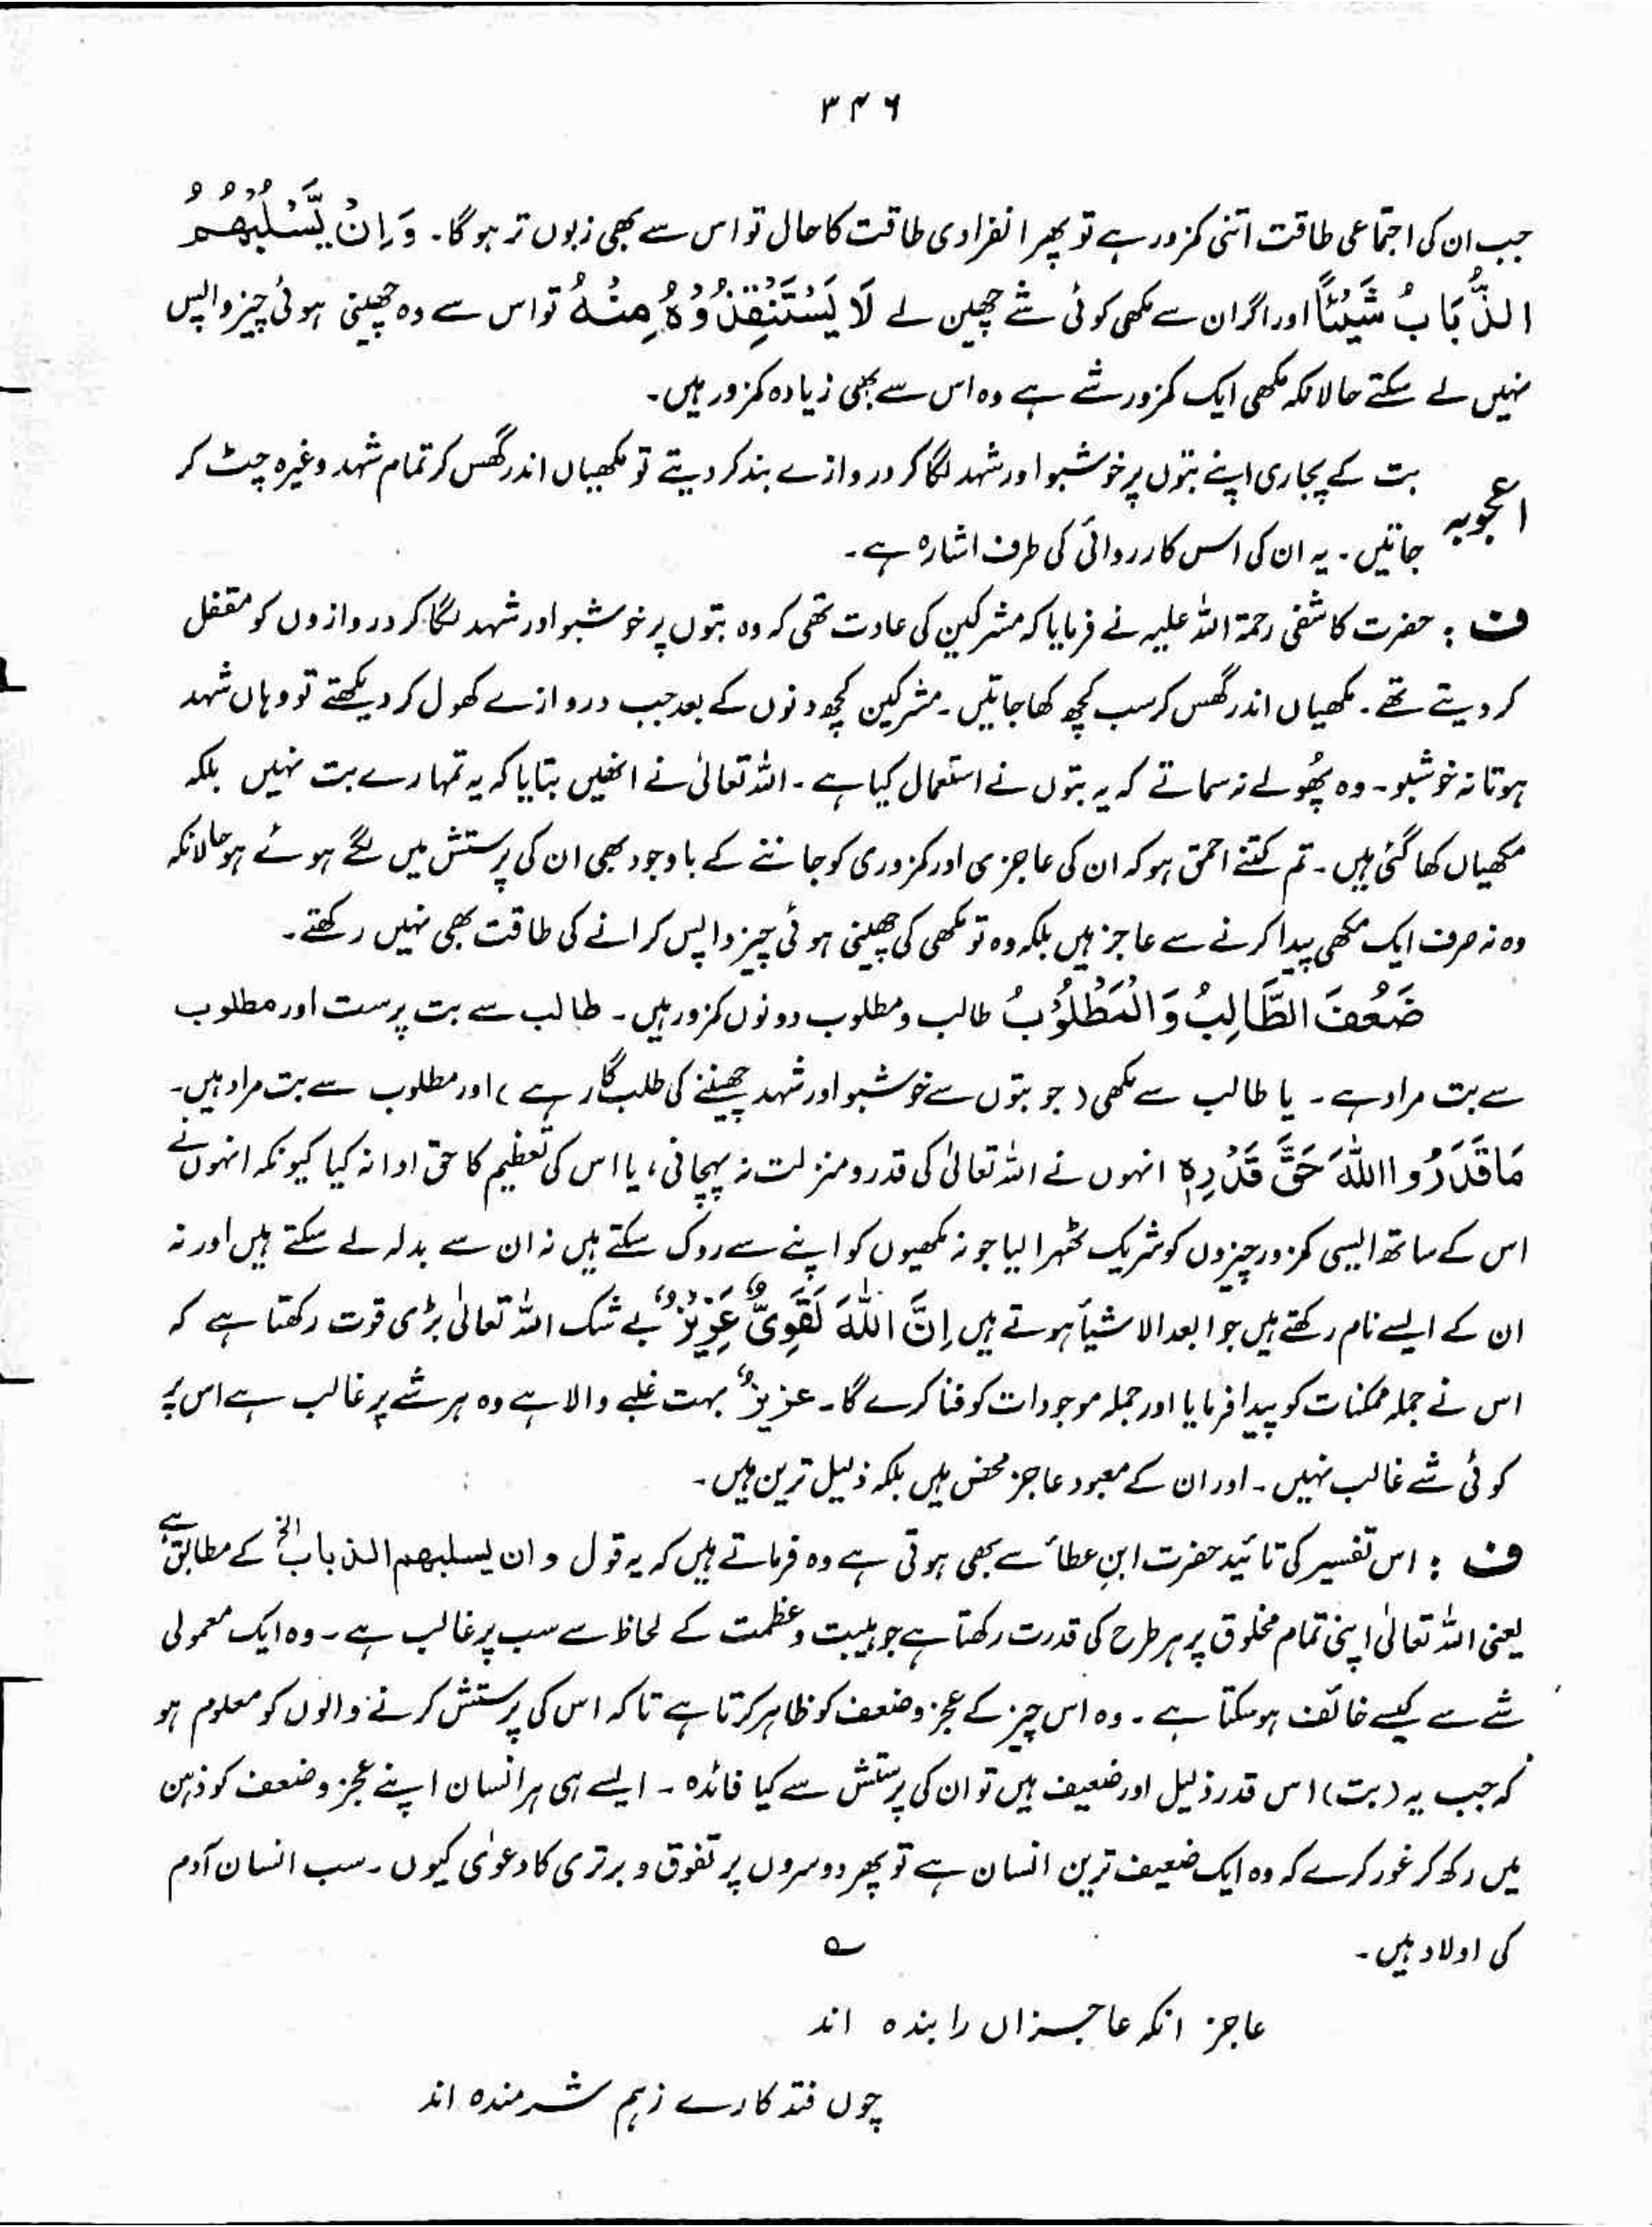 ۳۴۶
جب ان کی اجتماعی طاقت اتنی کمزور ہے تو پھر انفرادی طاقت کا حال تو اس سے بھی زبوں تر ہوگا۔ وَ اِنْ یَّسْلُبْهُمُ
الذُّبَابُ شَیْئًا اور اگر ان سے مکھی کوئی شے چھین لے لَا یَسْتَنْقِذُوْهُ مِنْهُ تو اس سے وہ چھینی ہوئی چیز واپس
نہیں لے سکتے حالانکہ مکھی ایک کمزور شے ہے وہ اس سے بھی زیادہ کمزور ہیں۔
اعجوبہ بت کے پجاری اپنے بتوں پر خوشبو اور شہد لگا کر دروازے بند کر دیتے تو مکھیاں اندر گھس کر تمام شہد وغیرہ چٹ کر
جاتیں۔ یہ ان کی اس کارروائی کی طرف اشارہ ہے۔
ف : حضرت کاشفی رحمۃ اللہ علیہ نے فرمایا کہ مشرکین کی عادت تھی کہ وہ بتوں پر خوشبو اور شہد لگا کر دروازوں کو مقفل
کر دیتے تھے۔ مکھیاں اندر گھس کر سب کچھ کھا جاتیں۔ مشرکین کچھ دنوں کے بعد جب دروازے کھول کر دیکھتے تو وہاں شہد
ہوتا نہ خوشبو۔ وہ پُھولے نہ سماتے کہ یہ بتوں نے استعمال کیا ہے۔ اللہ تعالیٰ نے انھیں بتایا کہ یہ تمہارے بت نہیں بلکہ
مکھیاں کھا گئی ہیں۔ تم کتنے احمق ہو کہ ان کی عاجزی اور کمزوری کو جاننے کے باوجود بھی ان کی پرستش میں لگے ہوئے ہو حالانکہ
وہ نہ صرف ایک مکھی پیدا کرنے سے عاجز ہیں بلکہ وہ تو مکھی کی چھینی ہوئی چیز واپس کرانے کی طاقت بھی نہیں رکھتے۔
ضَعُفَ الطَّالِبُ وَالْمَطْلُوْبُ طالب و مطلوب دونوں کمزور ہیں۔ طالب سے بت پرست اور مطلوب
سے بت مراد ہے۔ یا طالب سے مکھی (جو بتوں سے خوشبو اور شہد چھیننے کی طلبگار ہے) اور مطلوب سے بت مراد ہیں۔
مَا قَدَرُوا اللهَ حَقَّ قَدْرِهٖ انہوں نے اللہ تعالیٰ کی قدر و منزلت نہ پہچانی، یا اس کی تعظیم کا حق ادا نہ کیا کیونکہ انہوں نے
اس کے ساتھ ایسی کمزور چیزوں کو شریک ٹھہرا لیا جو نہ مکھیوں کو اپنے سے روک سکتے ہیں نہ ان سے بدلہ لے سکتے ہیں اور نہ
ان کے ایسے نام رکھتے ہیں جو ابعد الاشیأ ہوتے ہیں اِنَّ اللهَ لَقَوِیٌّ عَزِیْزٌ بے شک اللہ تعالیٰ بڑی قوت رکھتا ہے کہ
اس نے جملہ ممکنات کو پیدا فرمایا اور جملہ موجودات کو فنا کرے گا۔ عزیزٌ بہت غلبے والا ہے وہ ہر شے پر غالب ہے اس پر
کوئی شے غالب نہیں۔ اور ان کے معبود عاجز محض ہیں بلکہ ذلیل ترین ہیں۔
ف : اس تفسیر کی تائید حضرت ابنِ عطاء سے بھی ہوتی ہے وہ فرماتے ہیں کہ یہ قول و ان یسلبهم الذباب الخ کے مطابق ہے
یعنی اللہ تعالیٰ اپنی تمام مخلوق پر ہر طرح کی قدرت رکھتا ہے جو ہیبت و عظمت کے لحاظ سے سب پر غالب ہے۔ وہ ایک معمولی
شے سے کیسے خائف ہو سکتا ہے۔ وہ اس چیز کے عجز و ضعف کو ظاہر کرتا ہے تاکہ اس کی پرستش کرنے والوں کو معلوم ہو
کہ جب یہ (بت) اس قدر ذلیل اور ضعیف ہیں تو ان کی پرستش سے کیا فائدہ۔ ایسے ہی ہر انسان اپنے عجز و ضعف کو ذہن
میں رکھ کر غور کرے کہ وہ ایک ضعیف ترین انسان ہے تو پھر دوسروں پر تفوق و برتری کا دعوٰی کیوں۔ سب انسان آدم
کی اولاد ہیں۔ ؎
عاجز انکہ عاجزاں را بندہ اند
چوں فتد کارے زہم شرمندہ اند